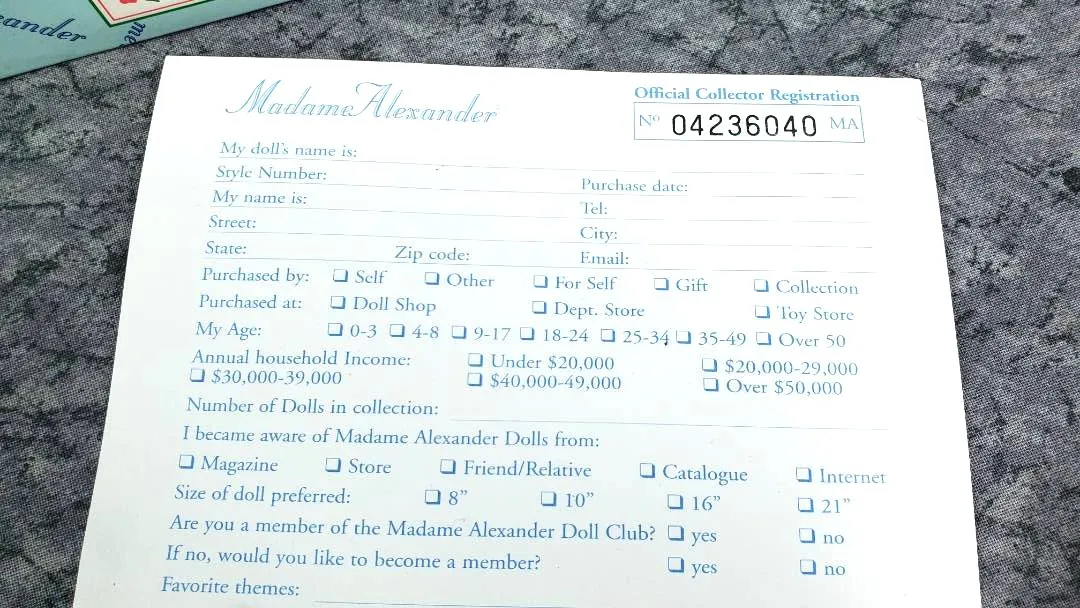 ander
me
Madame Alexander
Official Collector Registration
Nº 04236040 MA
My doll's name is:
Style Number:
Purchase date:
My name is:
Tel:
Street:
City:
State: Zip code: Email:
Purchased by: ❏ Self ❏ Other ❏ For Self ❏ Gift ❏ Collection
Purchased at: ❏ Doll Shop ❏ Dept. Store ❏ Toy Store
My Age: ❏ 0-3 ❏ 4-8 ❏ 9-17 ❏ 18-24 ❏ 25-34 ❏ 35-49 ❏ Over 50
Annual household Income: ❏ Under $20,000 ❏ $20,000-29,000
❏ $30,000-39,000 ❏ $40,000-49,000 ❏ Over $50,000
Number of Dolls in collection:
I became aware of Madame Alexander Dolls from:
❏ Magazine ❏ Store ❏ Friend/Relative ❏ Catalogue ❏ Internet
Size of doll preferred: ❏ 8" ❏ 10" ❏ 16" ❏ 21"
Are you a member of the Madame Alexander Doll Club? ❏ yes ❏ no
If no, would you like to become a member? ❏ yes ❏ no
Favorite themes: